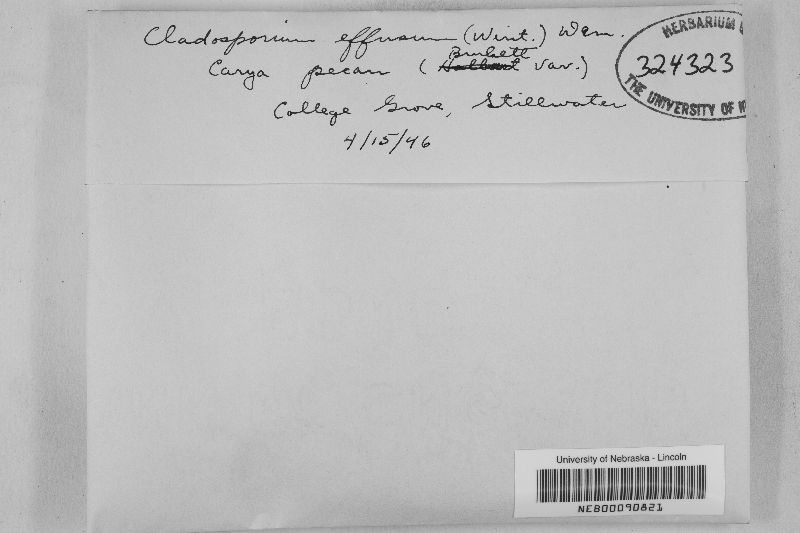 Cladosporium effusum (Wint.) Dem.
Carya pecan (Burkett var.)
College Grove, Stillwater
4/15/46
HERBARIUM
324323
THE UNIVERSITY OF
University of Nebraska - Lincoln
NEB00090821